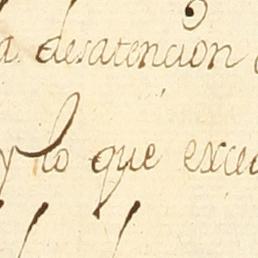 a desatencion
y lo que exce